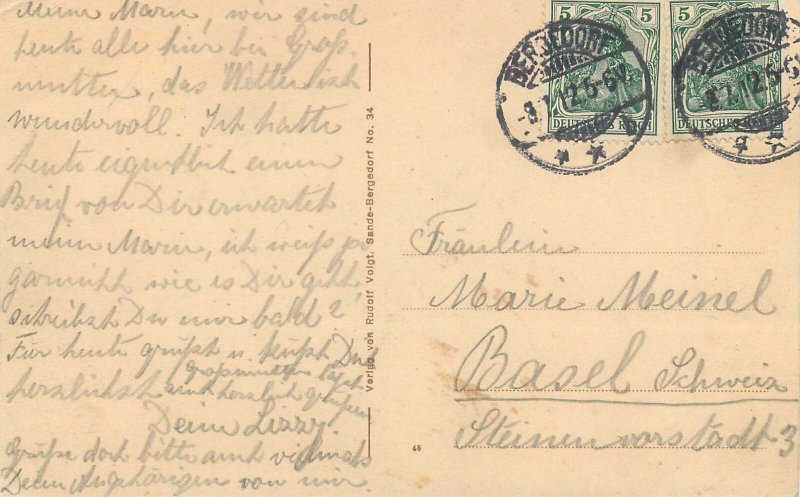 Meine Marie, wir sind
heute alle hier bei Groß-
mutter, das Wetter ist
wundervoll. Ich hatte
heute eigentlich einen
Brief von Dir erwartet
meine Marie, ich weiß ja
garnicht wie es Dir geht,
schreibst Du mir bald?
Für heute grüßt u. küßt Dich
herzlichst
Grossmutter läßt
auch herzlich grüßen
Deine Lizzy.
Grüße doch bitte auch vielmals
Deine Angehörigen von mir.
Verlag von Rudolf Voigt, Sande-Bergedorf No. 34
65
5 5 5
DEUTSCHES REICH
DEUTSCHES REICH
BERGEDORF
12.5-6N.
BERGEDORF
Fräulein
Marie Meinel
Basel Schweiz
Steinenvorstadt 3